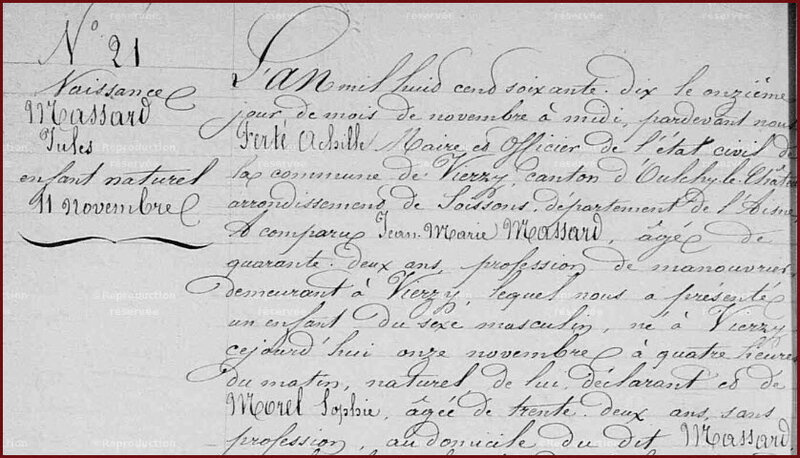 N° 21
Naissance
Massard
Jules
enfant naturel
11 novembre
L'an mil huit cent soixante-dix le onzième
jour de mois de novembre à midi, pardevant nous
Ferté Achille Maire et Officier de l'état civil de
la commune de Vierzy, canton d'Oulchy-le-Château
arrondissement de Soissons, département de l'Aisne,
A comparu Jean-Marie Massard, âgé de
quarante-deux ans, profession de manouvrier
demeurant à Vierzy, lequel nous a présenté
un enfant du sexe masculin, né à Vierzy
cejourd'hui onze novembre à quatre heures
du matin, naturel de lui déclarant et de
Morel Sophie, âgée de trente-deux ans, sans
profession, au domicile du dit Massard,
© Reproduction réservée